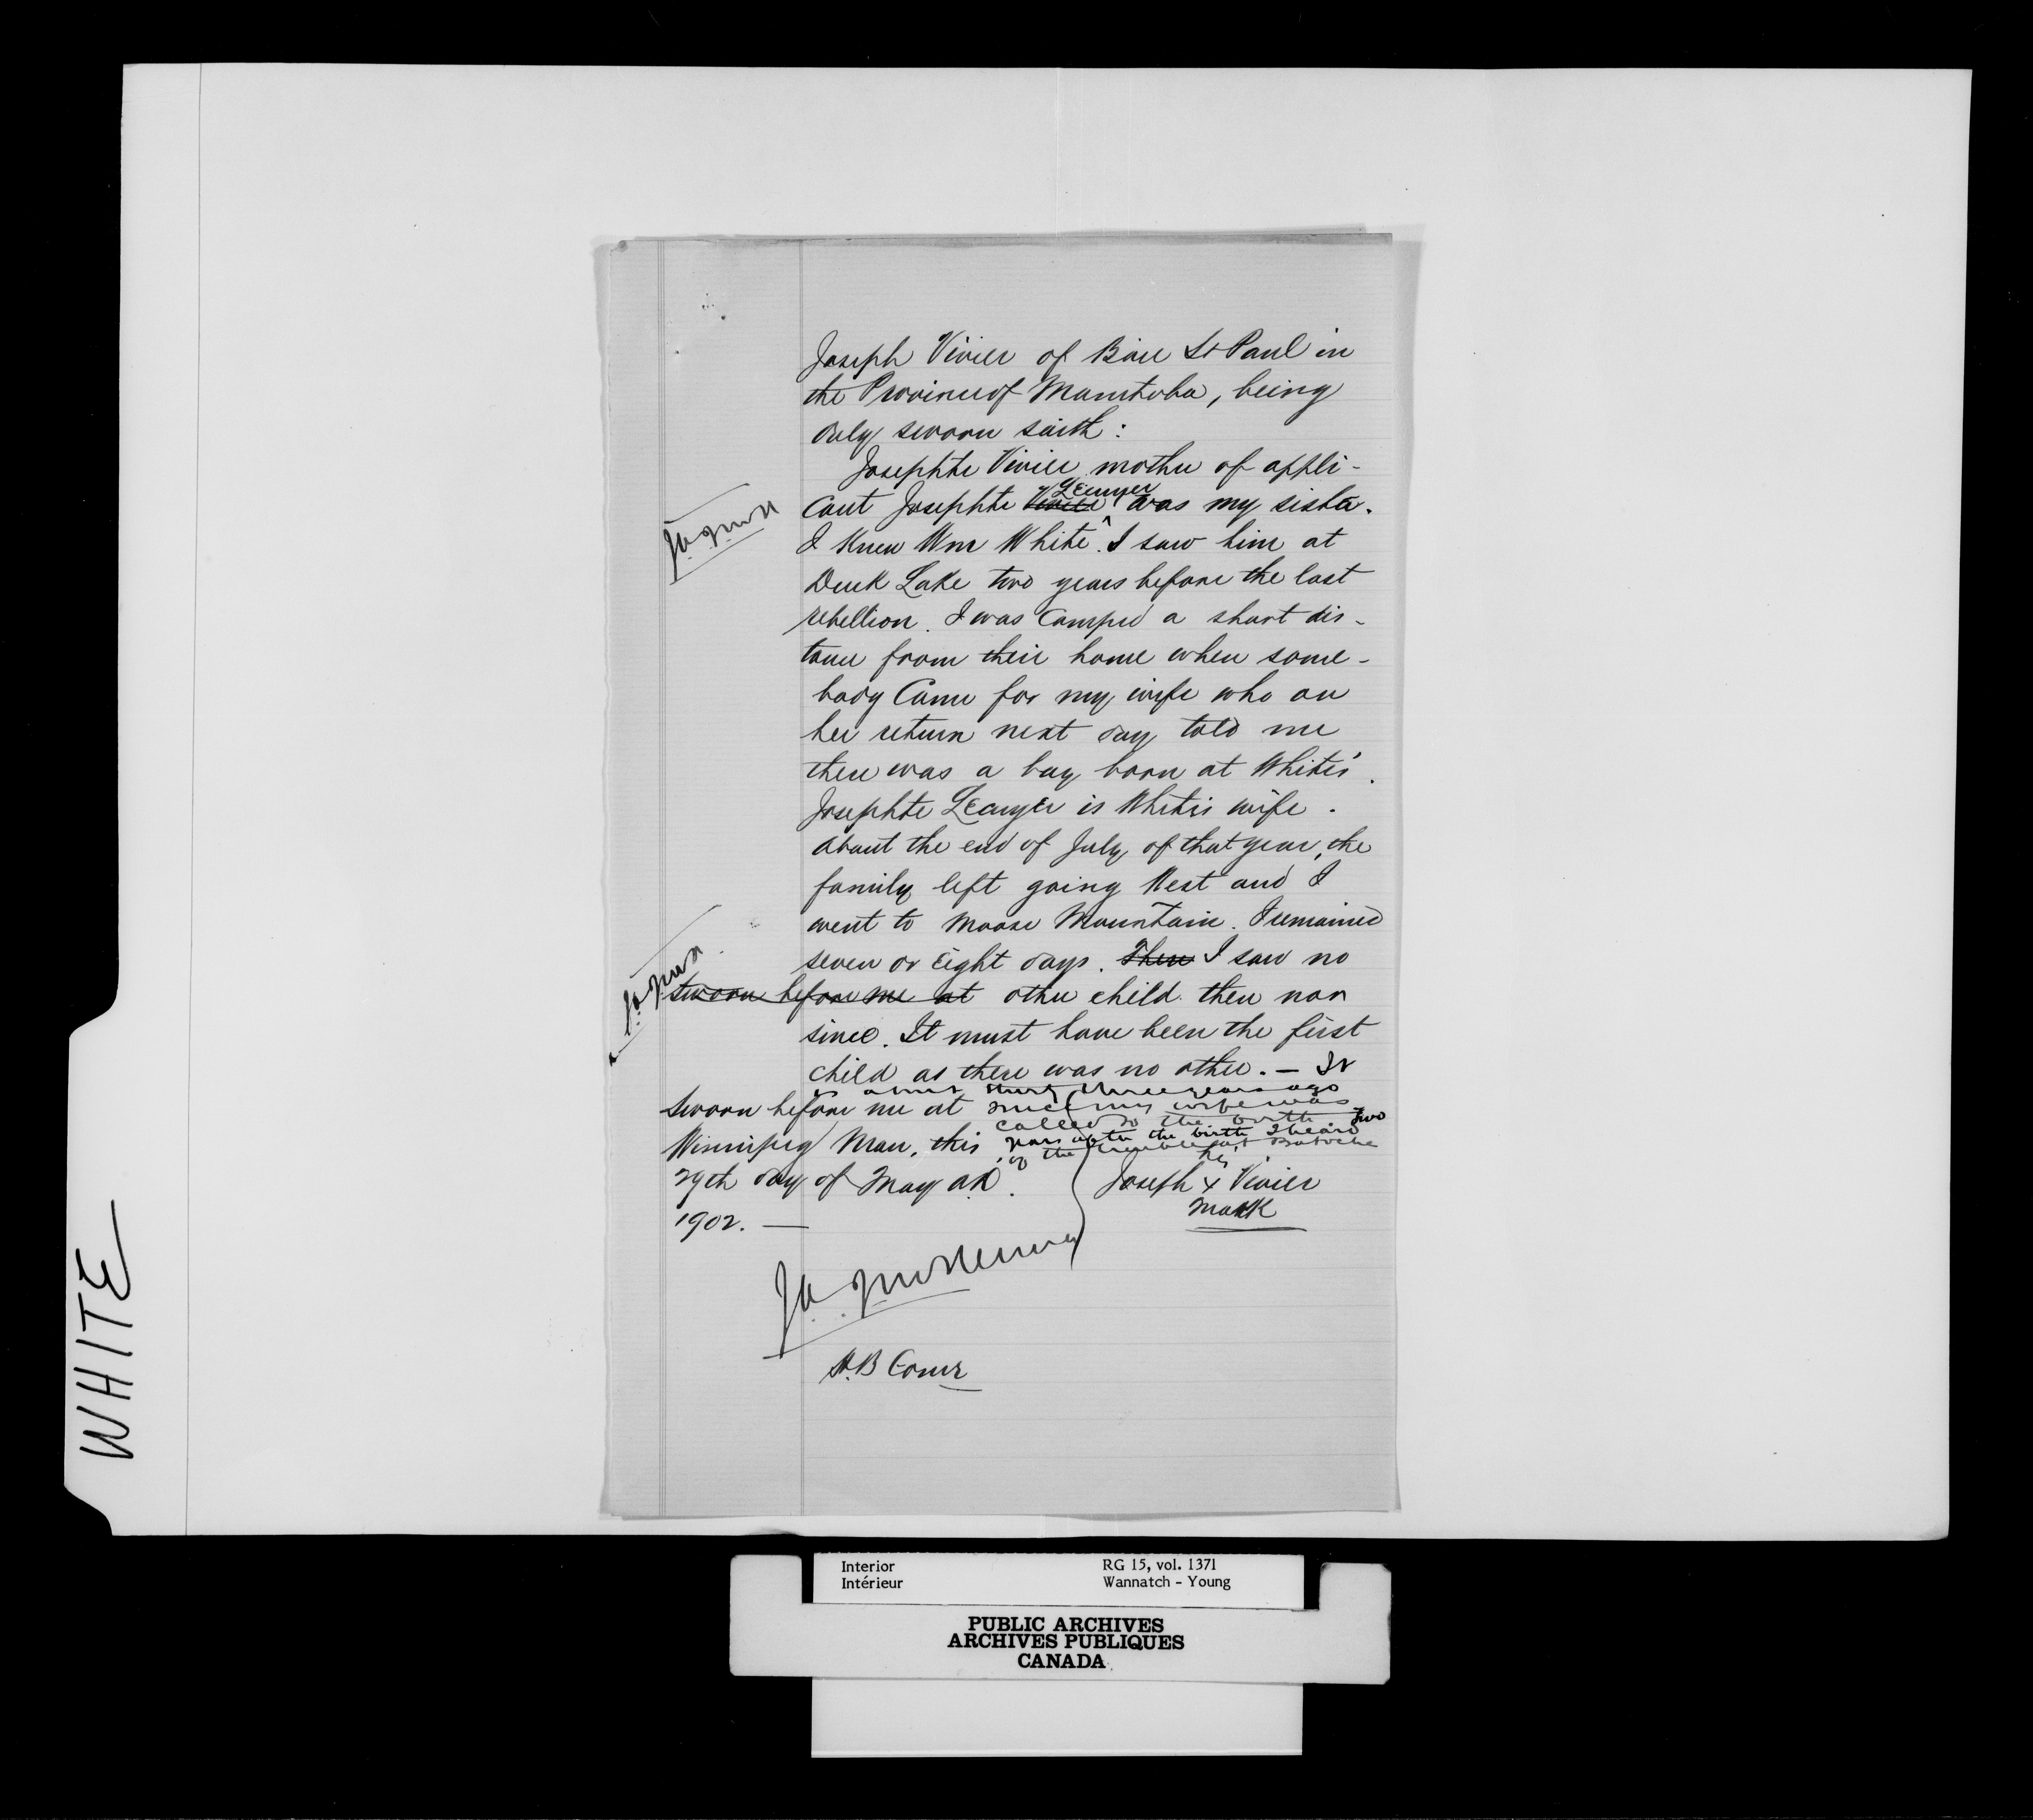 Joseph Vivier of Baie St Paul in
the Province of Manitoba, being
duly sworn saith:
Josephte Vivier mother of appli-
cant Josephte Vivier Lecuyer was my sister.
I knew Wm White. I saw him at
Duck Lake two years before the last
rebellion. I was camped a short dis-
tance from their home when some-
body came for my wife who on
her return next day told me
there was a boy born at White's.
Josephte Lecuyer is White's wife.
About the end of July of that year, the
family left going West and I
went to Moose Mountain. I remained
seven or eight days. There I saw no
Sworn before me at other child then nor
since. It must have been the first
child as there was no other. — It
is about three years ago
since my wife was
called to the birth. Two
years after the birth I heard
of the trouble at Batoche
Sworn before me at
Winnipeg Man. this
29th day of May A.D.
1902. —
his
Joseph x Vivier
mark
H.B Comr
WHITE
Interior
Intérieur
RG 15, vol. 1371
Wannatch - Young
PUBLIC ARCHIVES
ARCHIVES PUBLIQUES
CANADA